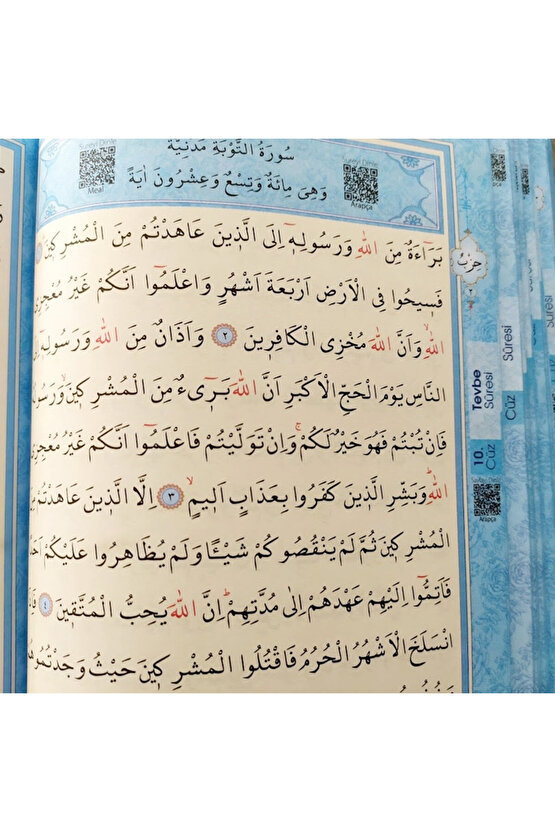 سُورَةُ التَّوْبَةِ مَدَنِيَّةٌ
وَهِيَ مِائَةٌ وَتِسْعٌ وَعِشْرُونَ اٰيَةً
Meal
Arapça
بَرَٓاءَةٌ مِنَ اللّٰهِ وَرَسُولِه۪ٓ اِلَى الَّذ۪ينَ عَاهَدْتُمْ مِنَ الْمُشْرِك۪ينَ
فَس۪يحُوا فِي الْاَرْضِ اَرْبَعَةَ اَشْهُرٍ وَاعْلَمُٓوا اَنَّكُمْ غَيْرُ مُعْجِزِي
اللّٰهِۙ وَاَنَّ اللّٰهَ مُخْزِي الْكَافِر۪ينَ ﴿٢﴾ وَاَذَانٌ مِنَ اللّٰهِ وَرَسُولِه۪ٓ
النَّاسِ يَوْمَ الْحَجِّ الْاَكْبَرِ اَنَّ اللّٰهَ بَر۪ٓيءٌ مِنَ الْمُشْرِك۪ينَۙ وَرَسُولُ
فَاِنْ تُبْتُمْ فَهُوَ خَيْرٌ لَكُمْۚ وَاِنْ تَوَلَّيْتُمْ فَاعْلَمُٓوا اَنَّكُمْ غَيْرُ مُعْجِزِي
اللّٰهِۜ وَبَشِّرِ الَّذ۪ينَ كَفَرُوا بِعَذَابٍ اَل۪يمٍۙ ﴿٣﴾ اِلَّا الَّذ۪ينَ عَاهَدْتُمْ
الْمُشْرِك۪ينَ ثُمَّ لَمْ يَنْقُصُوكُمْ شَيْـًٔا وَلَمْ يُظَاهِرُوا عَلَيْكُمْ اَحَ
فَاَتِمُّٓوا اِلَيْهِمْ عَهْدَهُمْ اِلٰى مُدَّتِهِمْۜ اِنَّ اللّٰهَ يُحِبُّ الْمُتَّق۪ينَ ﴿٤﴾
انْسَلَخَ الْاَشْهُرُ الْحُرُمُ فَاقْتُلُوا الْمُشْرِك۪ينَ حَيْثُ وَجَدْتُمُوهُ
حِزْبُ
٢
Tevbe
Sûresi
10.
Cüz
Arapça
Sûresi
Cüz